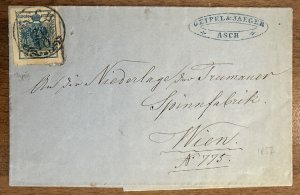 GEIPEL & JAEGER
ASCH
An die Niederlage der Trumauer
Spinnfabrik
Wien
No 775.
1857